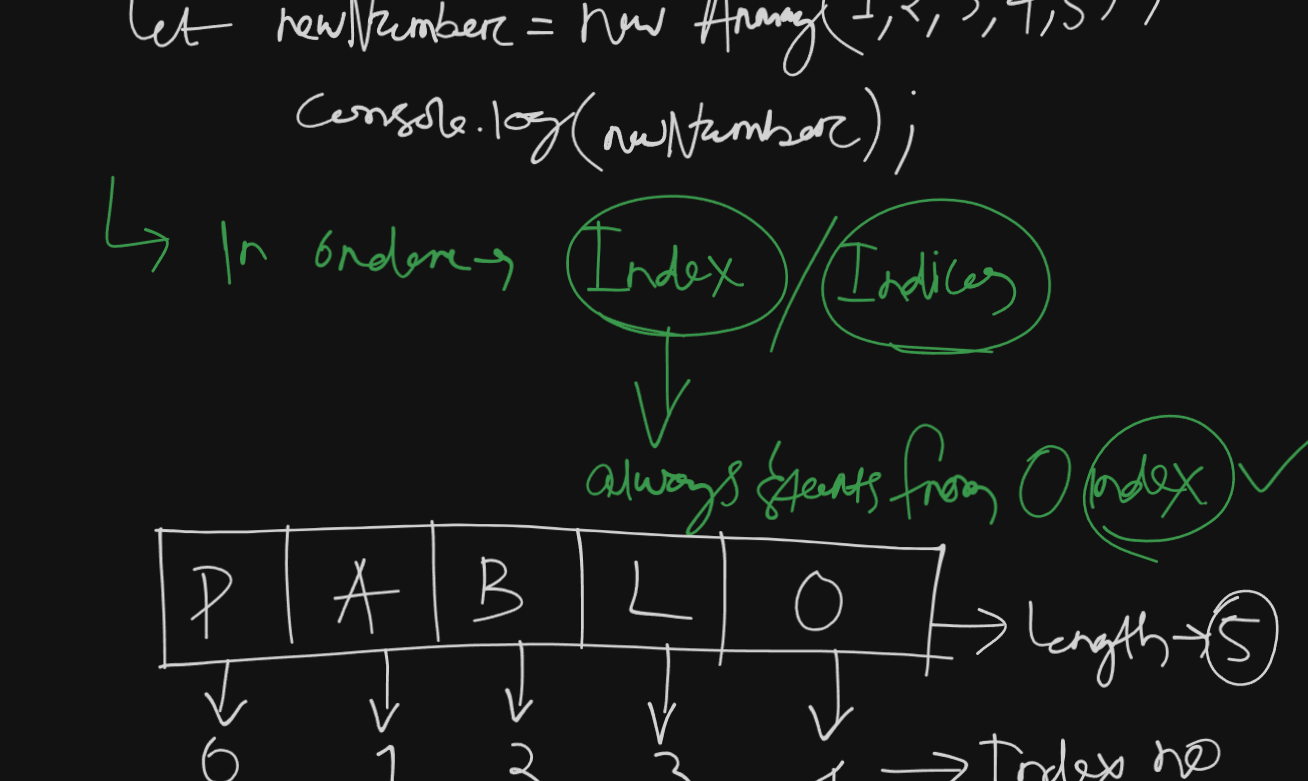 let newNumber = new Array(1, 2, 3, 4, 5);
console.log(newNumber);
In order → Index / Indices
always starts from 0 index
P A B L O → length → 5
0 1 2 3 4 → Index no